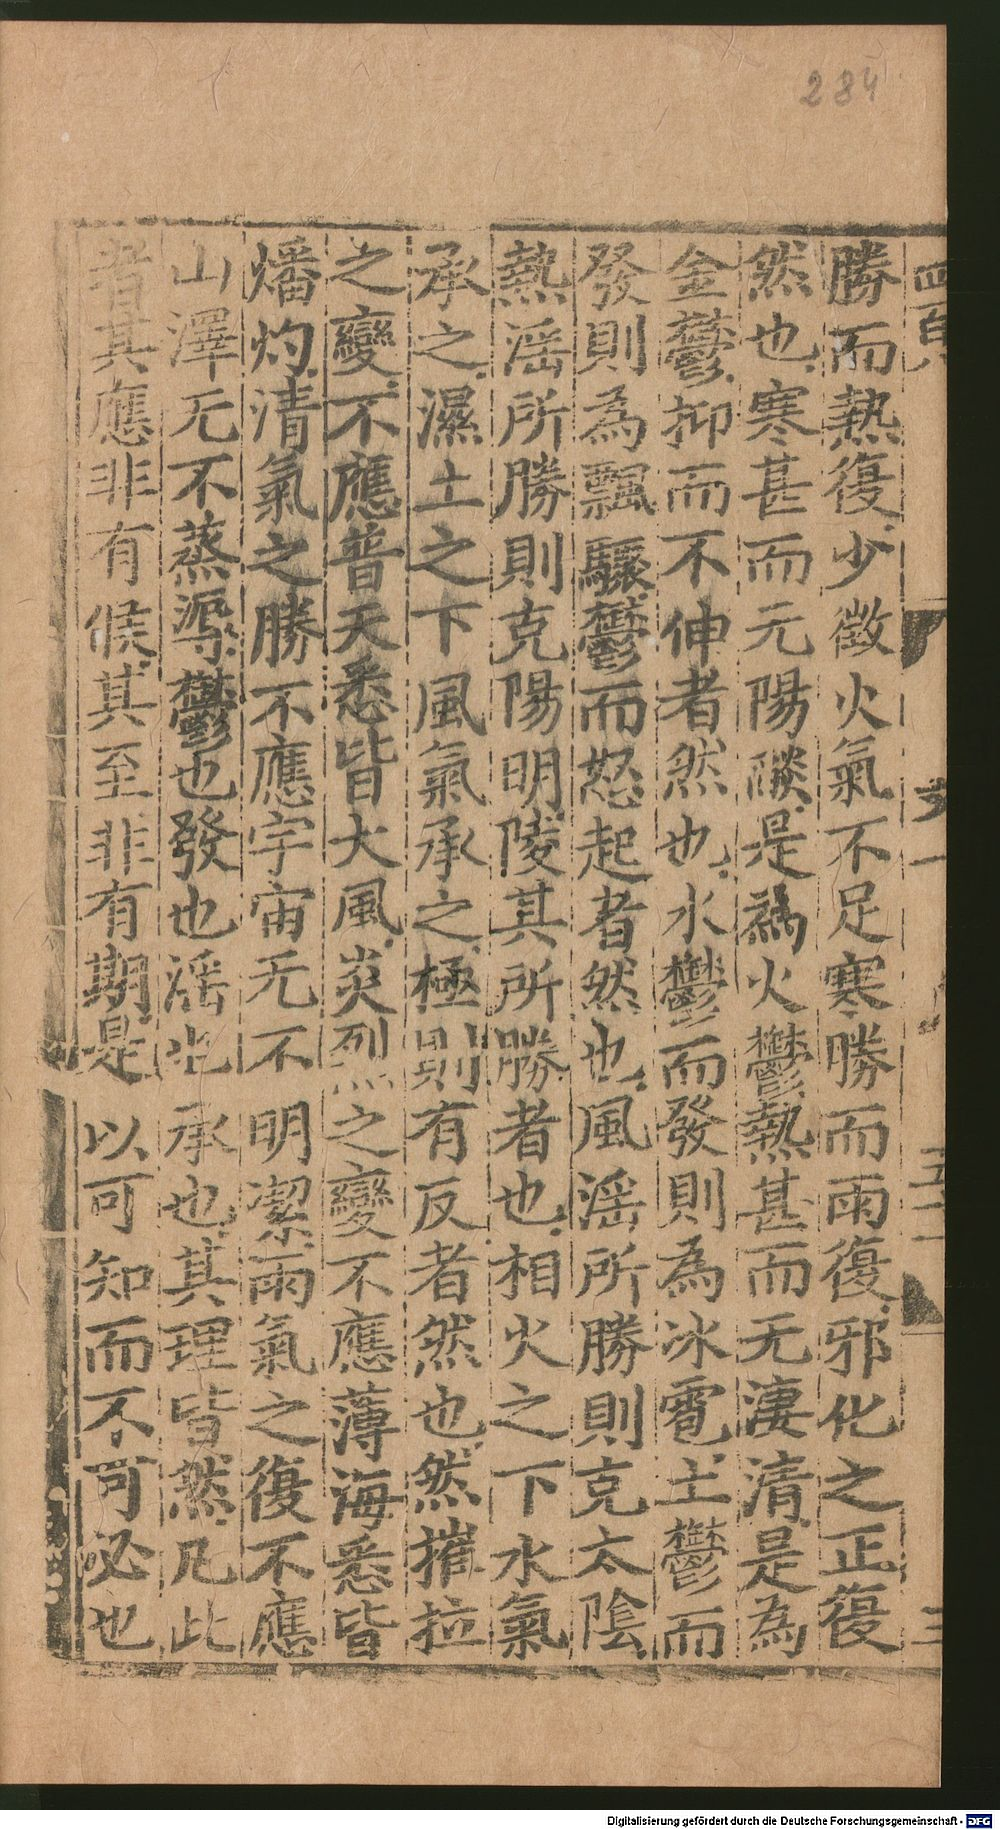 284
勝而熱復少徵火氣不足寒勝而雨復邪化之正復
然也寒甚而元陽𦦨是為火鬱熱甚而无淒清是為
金鬱抑而不伸者然也水鬱而發則為冰雹土鬱而
發則為飄驟鬱而怒起者然也風淫所勝則克太陰
熱淫所勝則克陽明陵其所勝者也相火之下水氣
承之濕土之下風氣承之極則有反者然也然摧拉
之變不應普天悉皆大風炎烈之變不應薄海悉皆
燔灼清氣之勝不應宇宙无不明潔雨氣之復不應
山澤无不蒸溽鬱也發也淫也承也其理皆然凡此
者其應非有候其至非有期是以可知而不可必也
Digitalisierung gefördert durch die Deutsche Forschungsgemeinschaft - DFG